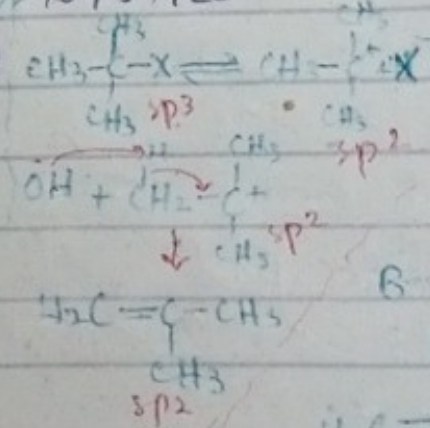 CH3
CH3-C-X ⇌ CH -C+ :X
CH3 sp3 CH3 sp2
H CH3
OH + CH2-C+
CH3 sp2
H2C=C-CH3
CH3
sp2